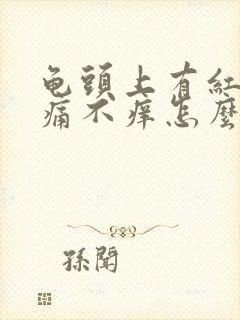 龟頭上有紅
痛不痒怎麼
孫聞